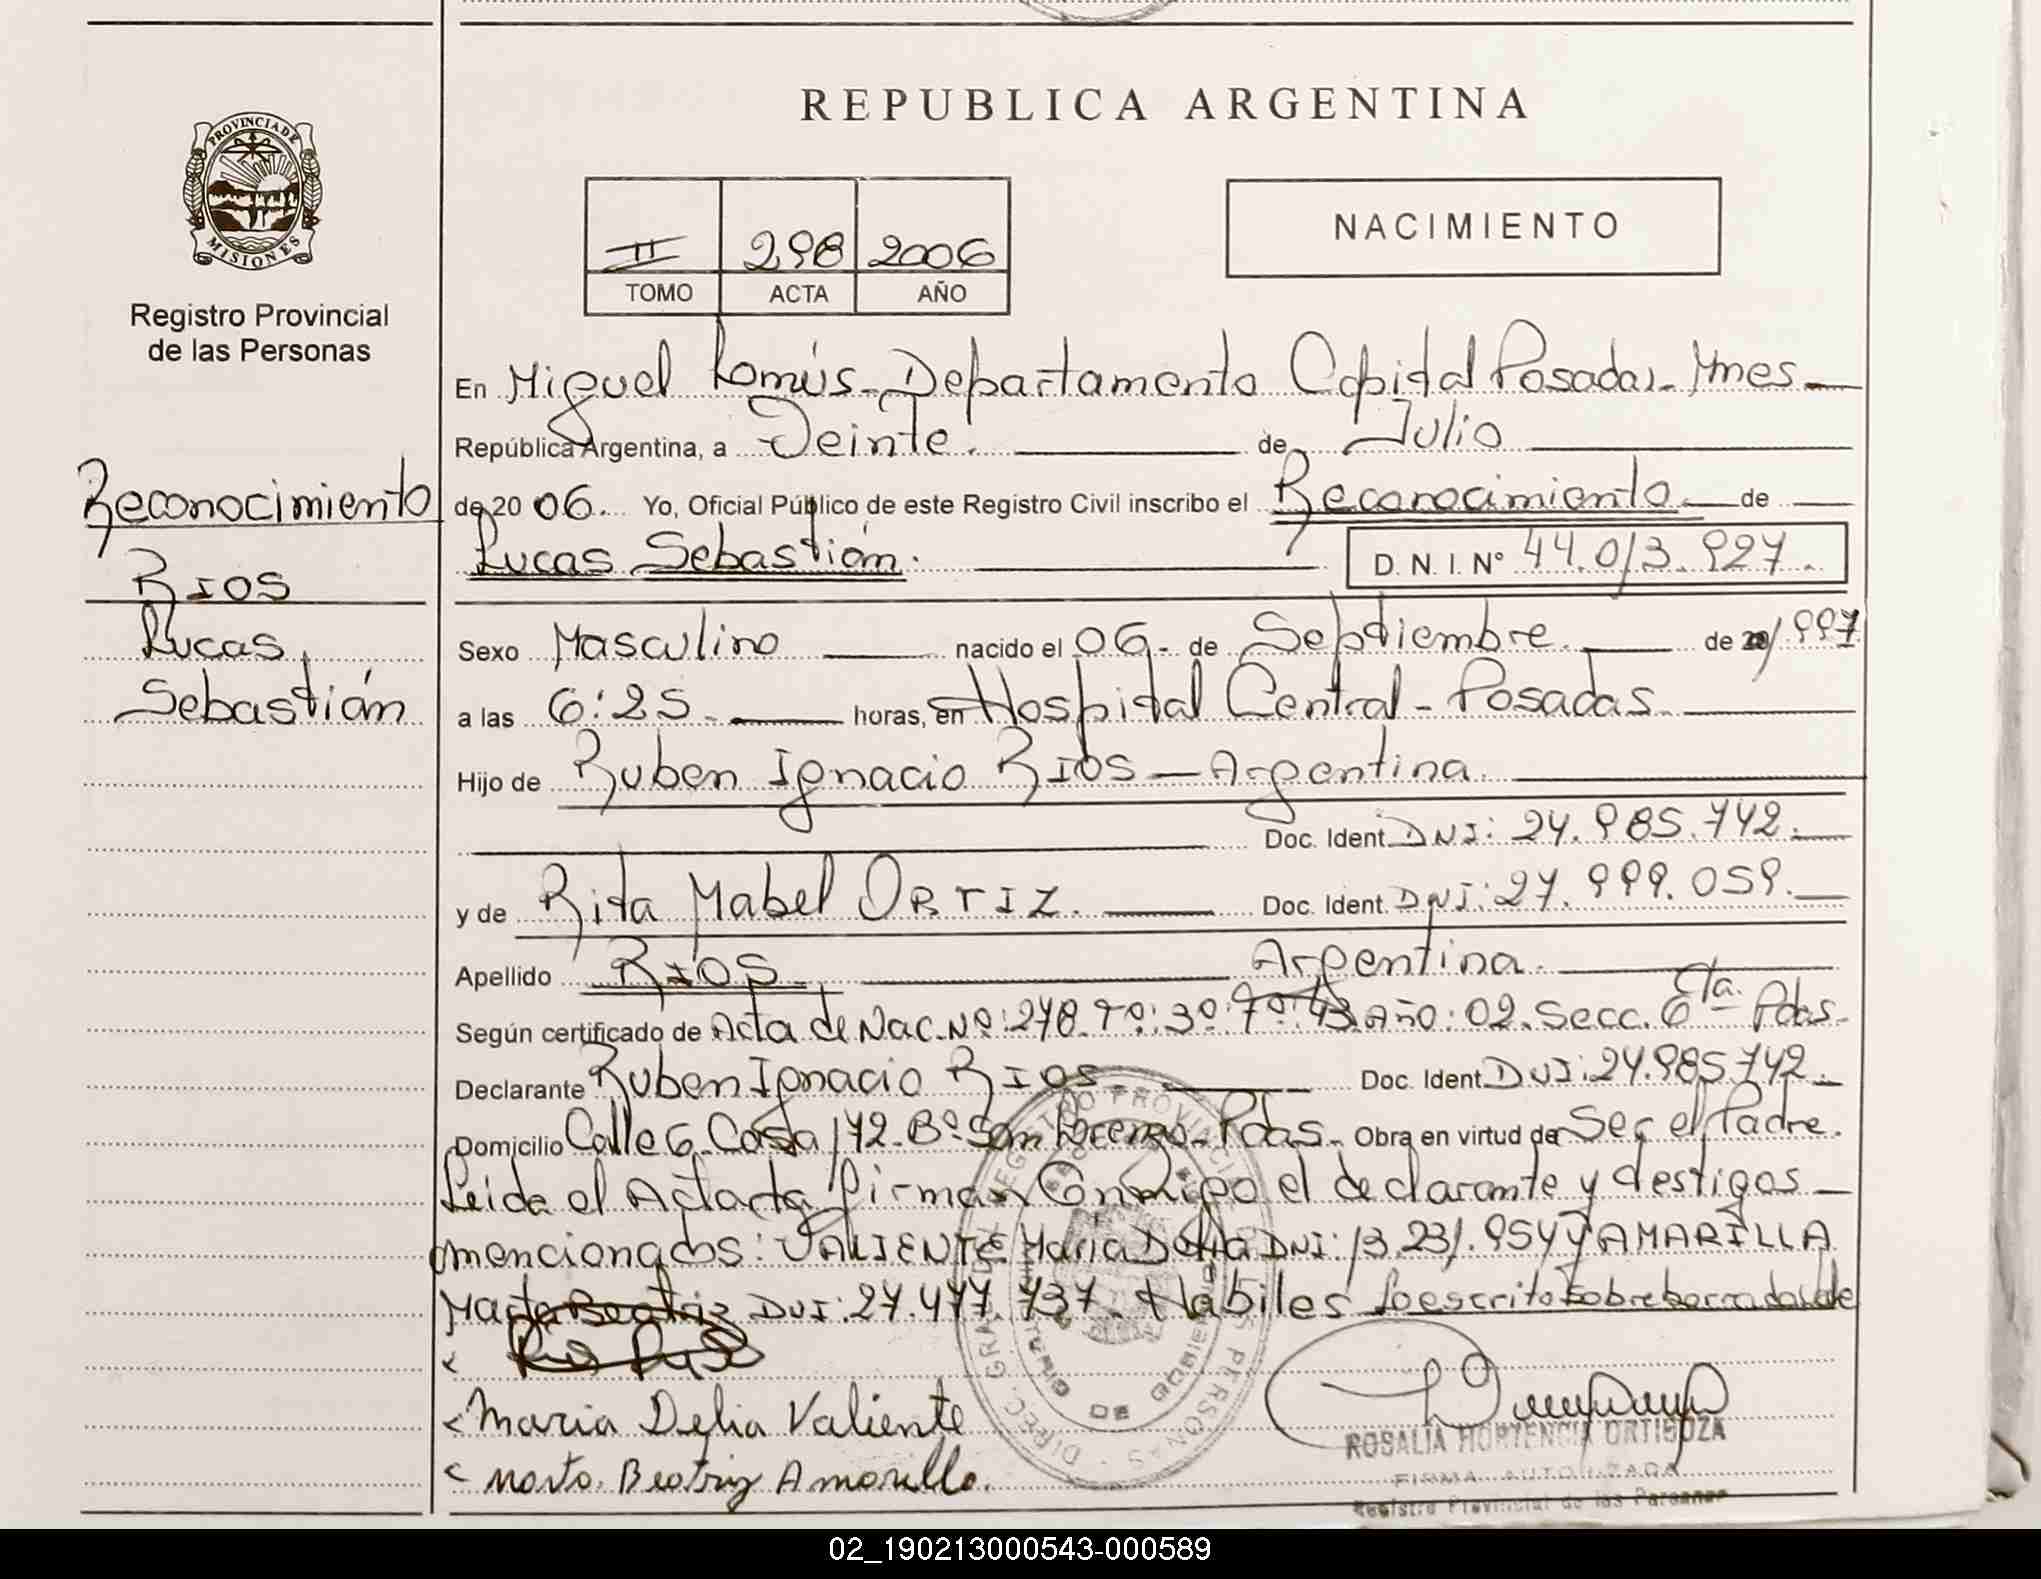 REPUBLICA ARGENTINA
PROVINCIA DE
MISIONES
Registro Provincial
de las Personas
II 298 2006
TOMO ACTA AÑO
NACIMIENTO
Reconocimiento
RIOS
Lucas
Sebastián
En Miguel Lanús - Departamento Capital Posadas - Mnes
República Argentina, a Veinte. de Julio
de 20 06. Yo, Oficial Público de este Registro Civil inscribo el Reconocimiento de
Lucas Sebastián. D. N. I. Nº 44.013.927.
Sexo Masculino nacido el 06 de Septiembre de 1997
a las 6:25 horas, en Hospital Central - Posadas
Hijo de Ruben Ignacio RIOS - Argentina
Doc. Ident. DNI: 24.985.742.
y de Rita Mabel ORTIZ. Doc. Ident. DNI: 27.999.059.
Apellido RIOS Argentina.
Según certificado de Acta de Nac. Nº: 278. Tº: 3º Año: 02. Secc. 6ta Pdas.
Declarante Ruben Ignacio RIOS Doc. Ident. DNI: 24.985.742.
Domicilio Calle 6 Casa 172 - Bº San Lorenzo - Pdas. Obra en virtud de Ser el Padre.
Leida el Acta firman Conmigo el declarante y testigos
mencionados: VALIENTE Maria Delia DNI: 13.231.954 y AMARILLA
Marta Beatriz DNI: 27.477.737. Habiles lo escrito sobre borrado vale
Maria Delia Valiente
Marta Beatriz Amarilla.
ROSALIA HORTENCIA ORTIGOZA
FIRMA AUTORIZADA
Registro Provincial de las Personas
02_190213000543-000589